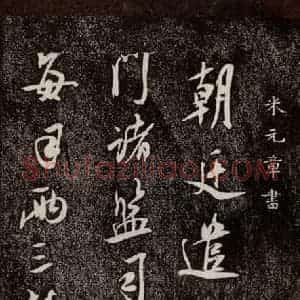 米元章書
朝廷遣
門諸監司
每日兩三
Shufaziliao.com